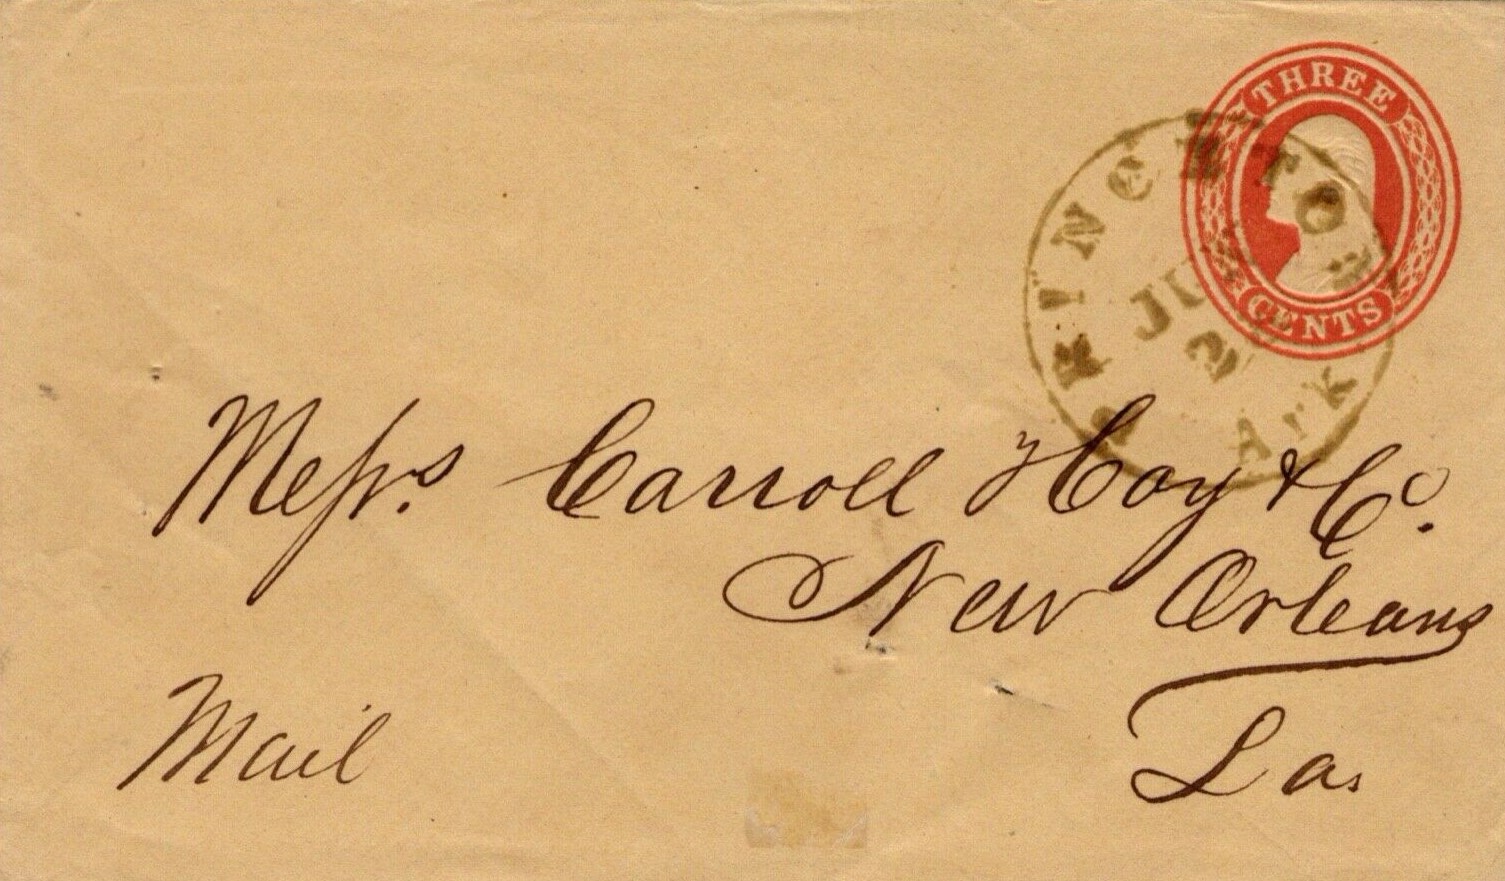 THREE
CENTS
PRINCETON
JUL
2
Ark
Messrs. Carroll Hoy & Co.
New Orleans
La.
Mail